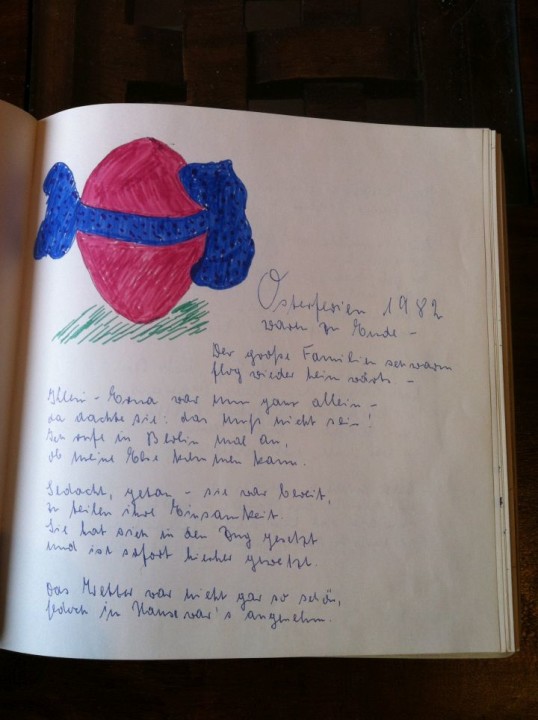 Osterferien 1982
waren zu Ende -
Der große Familienschwarm
flog wieder heimwärts -
Klein-Erna war nun ganz allein -
da dachte sie: das muß nicht sein!
Ich rufe in Berlin mal an,
ob meine Else kommen kann.
Gedacht, getan - sie war bereit,
zu teilen ihre Einsamkeit.
Sie hat sich in den Zug gesetzt
und ist sofort hierher gewetzt.
Das Wetter war nicht gar so schön,
jedoch im Hause war's angenehm.